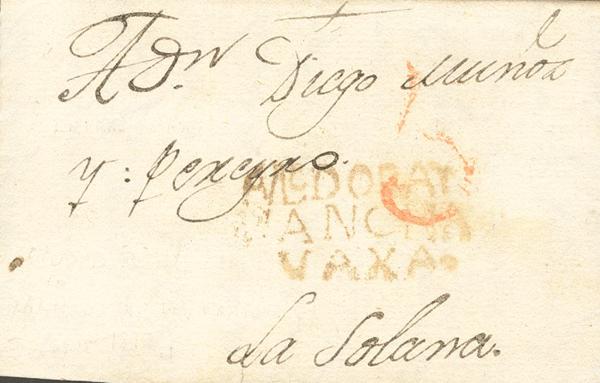 A Dn. Diego Muñoz
y: Pereyro.
ALCDORAT
MANCHA
VAXA.
La Solana.